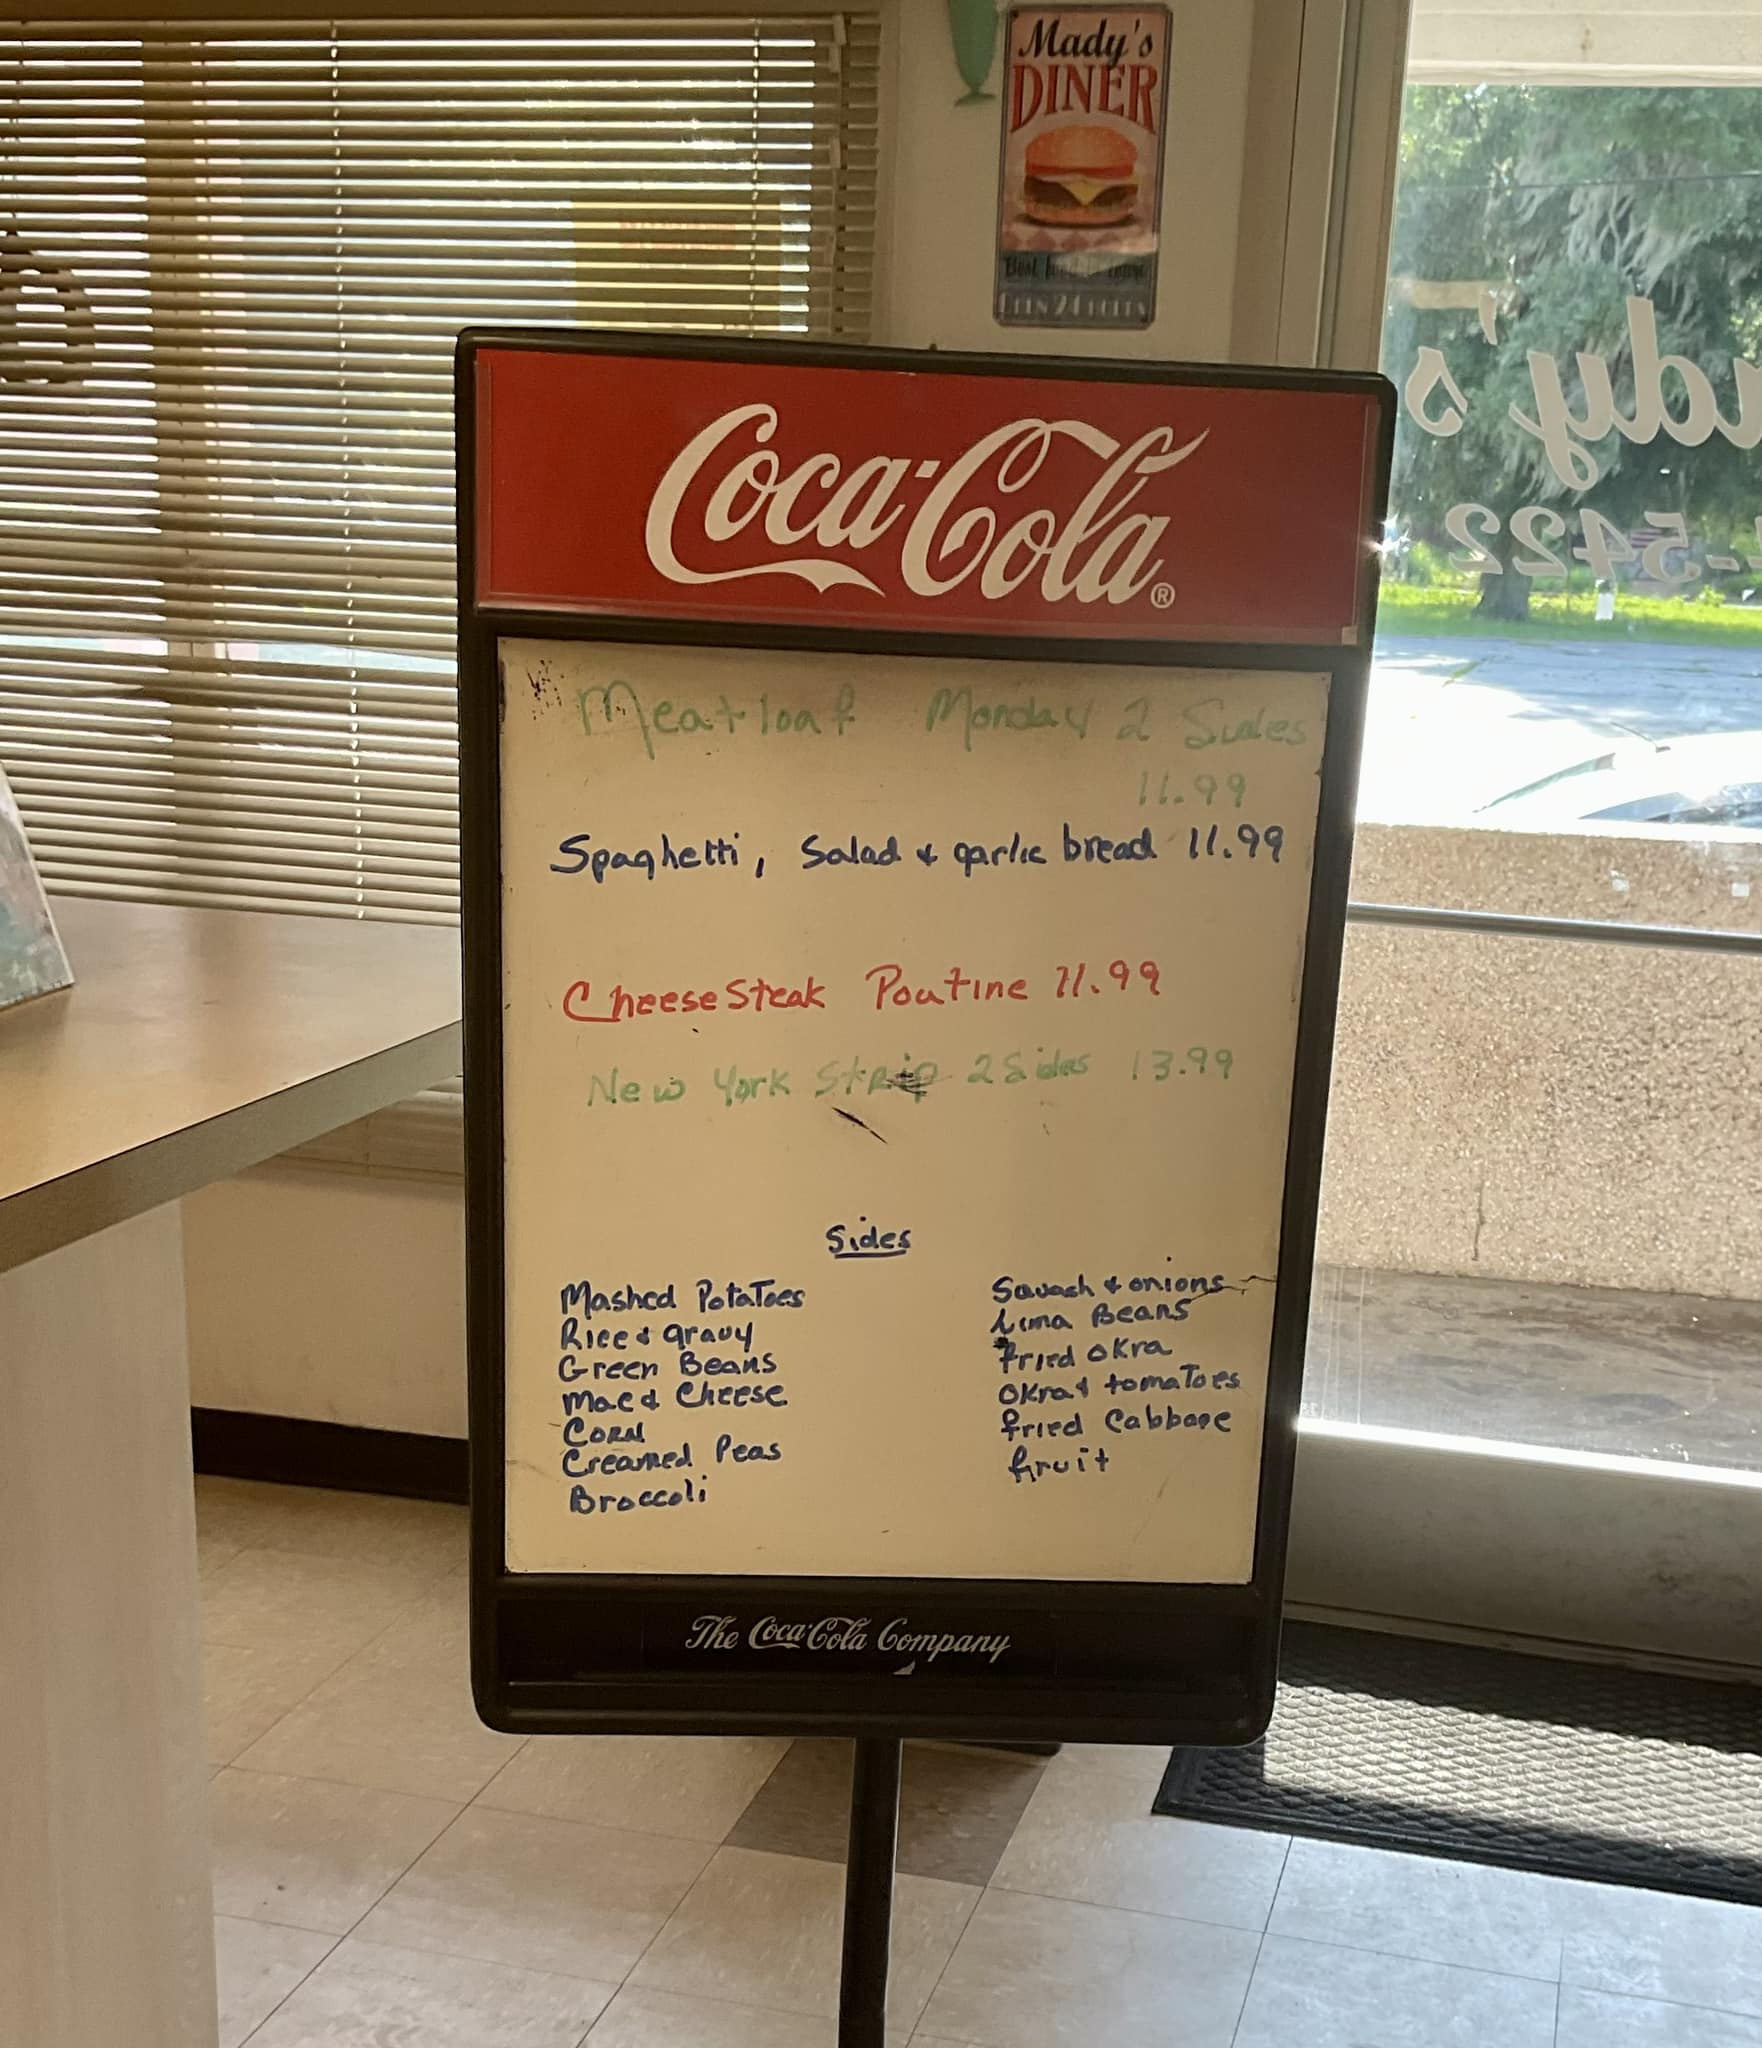 Mady's
DINER
OPEN 24 HOURS
dy's
-5422
Coca-Cola®
Meatloaf Monday 2 Sides
11.99
Spaghetti, Salad & garlic bread 11.99
CheeseSteak Poutine 11.99
New York Strip 2 Sides 13.99
Sides
Mashed Potatoes
Rice & gravy
Green Beans
Mac & Cheese
Corn
Creamed Peas
Broccoli
Squash & onions
Lima Beans
fried okra
Okra & tomatoes
fried Cabbage
fruit
The Coca-Cola Company